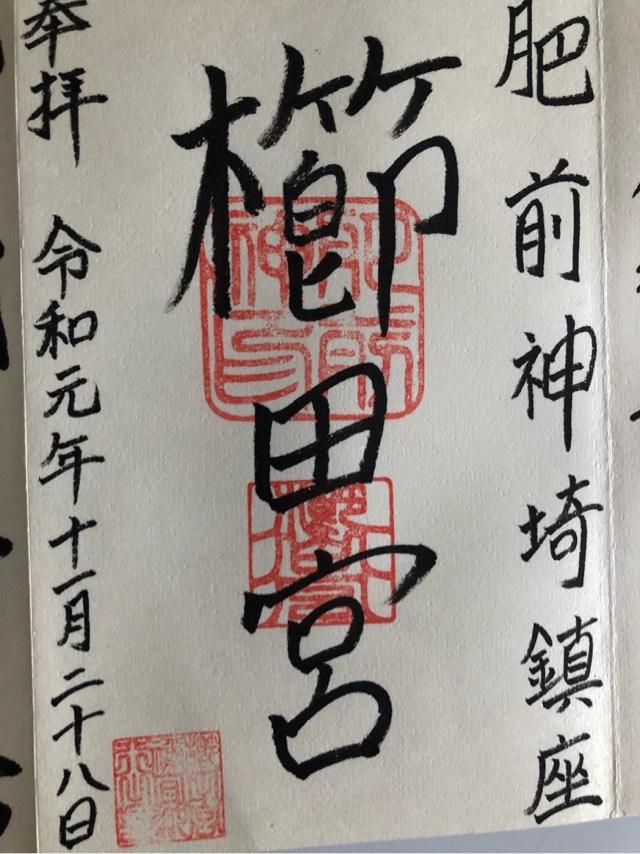 肥前神埼鎮座
櫛田宮
奉拝 令和元年十一月二十八日